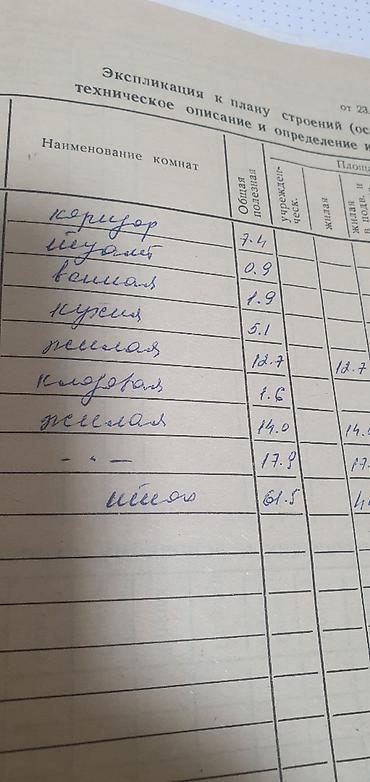 от 23.
Экспликация к плану строений (ос
техническое описание и определение и
Наименование комнат
Общая полезная
Площа
учрежден-
ческ.
жилая
жилая
в подв. и
коридор 7.4
туалет 0.9
ванная 1.9
кухня 5.1
жилая 12.7 12.7
кладовая 1.6
жилая 14.0 14.
— " — 17.9 17.
итого 61.5